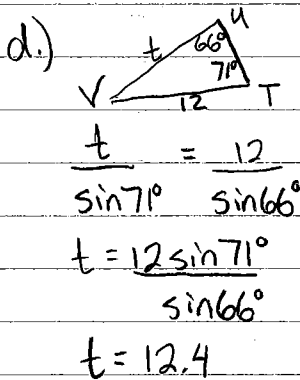 d.)
U
t 66°
71°
V 12 T
t = 12
sin71° sin66°
t = 12sin71°
sin66°
t = 12.4